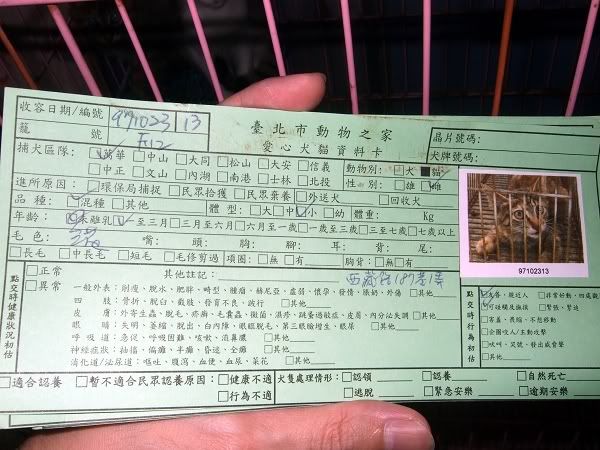 收容日期/編號 971023 13
籠 號 F12
臺北市動物之家
愛心犬貓資料卡
晶片號碼:
犬牌號碼:
捕犬區隊: ☑萬華 □中山 □大同 □松山 □大安 □信義 動物別: □犬 ■貓
□中正 □文山 □內湖 □南港 □士林 □北投 性 別: □雄 ☑雌
進所原因: ☑環保局捕捉 □民眾拾獲 □民眾棄養 □外送犬 □回收犬
品 種: ☑混種 □其他 體 型: □大 □中 ☑小 □幼 體重: Kg
年齡: □未離乳 ☑至三月 □三月至六月 □六月至一歲 □一歲至三歲 □三歲至七歲 □七歲以上
毛 色: 嘴: 頭: 胸: 腳: 耳: 背: 尾:
□長毛 □中長毛 □短毛 □毛修剪過 項圈: □無 □有 胸背: □無 □有
97102313
點交時健康狀況初估
□正常
□異常
其他註記: 西藏路187巷
一般外表: 削瘦、脫水、肥胖、畸型、腫瘤、赫尼亞、虛弱、懷孕、發情、脹奶、外傷 □其他
四 肢: 骨折、脫臼、截肢、發育不良、跛行 □其他
皮 膚: 外寄生蟲、脫毛、疥癬、毛囊蟲、黴菌、濕疹、跳蚤過敏症、皮膚、內分泌失調 □其他
眼 睛: 失明、萎縮、脫出、白內障、眼瞼脫毛、第三眼瞼增生、眼屎 □其他
呼 吸 道: 急促、呼吸困難、咳嗽、流鼻膿 □其他
神經症狀: 抽搐、偏癱、半癱、昏迷、全癱 □其他
消化道/泌尿道: 嘔吐、腹瀉、血便、血尿、菜花 □其他
點交時行為初估
☑友善、親近人 □非常好動、四處觀
☑可碰觸及撫摸 □緊張、緊迫
□害羞、畏縮、不想移動
□企圖咬人/主動攻擊
□吠叫、哭號、發出威脅聲
□其他
□適合認養 □暫不適合民眾認養原因: □健康不適 □行為不適
犬隻處理情形: □認領 □認養 □自然死亡
□逃脫 □緊急安樂 □逾期安樂